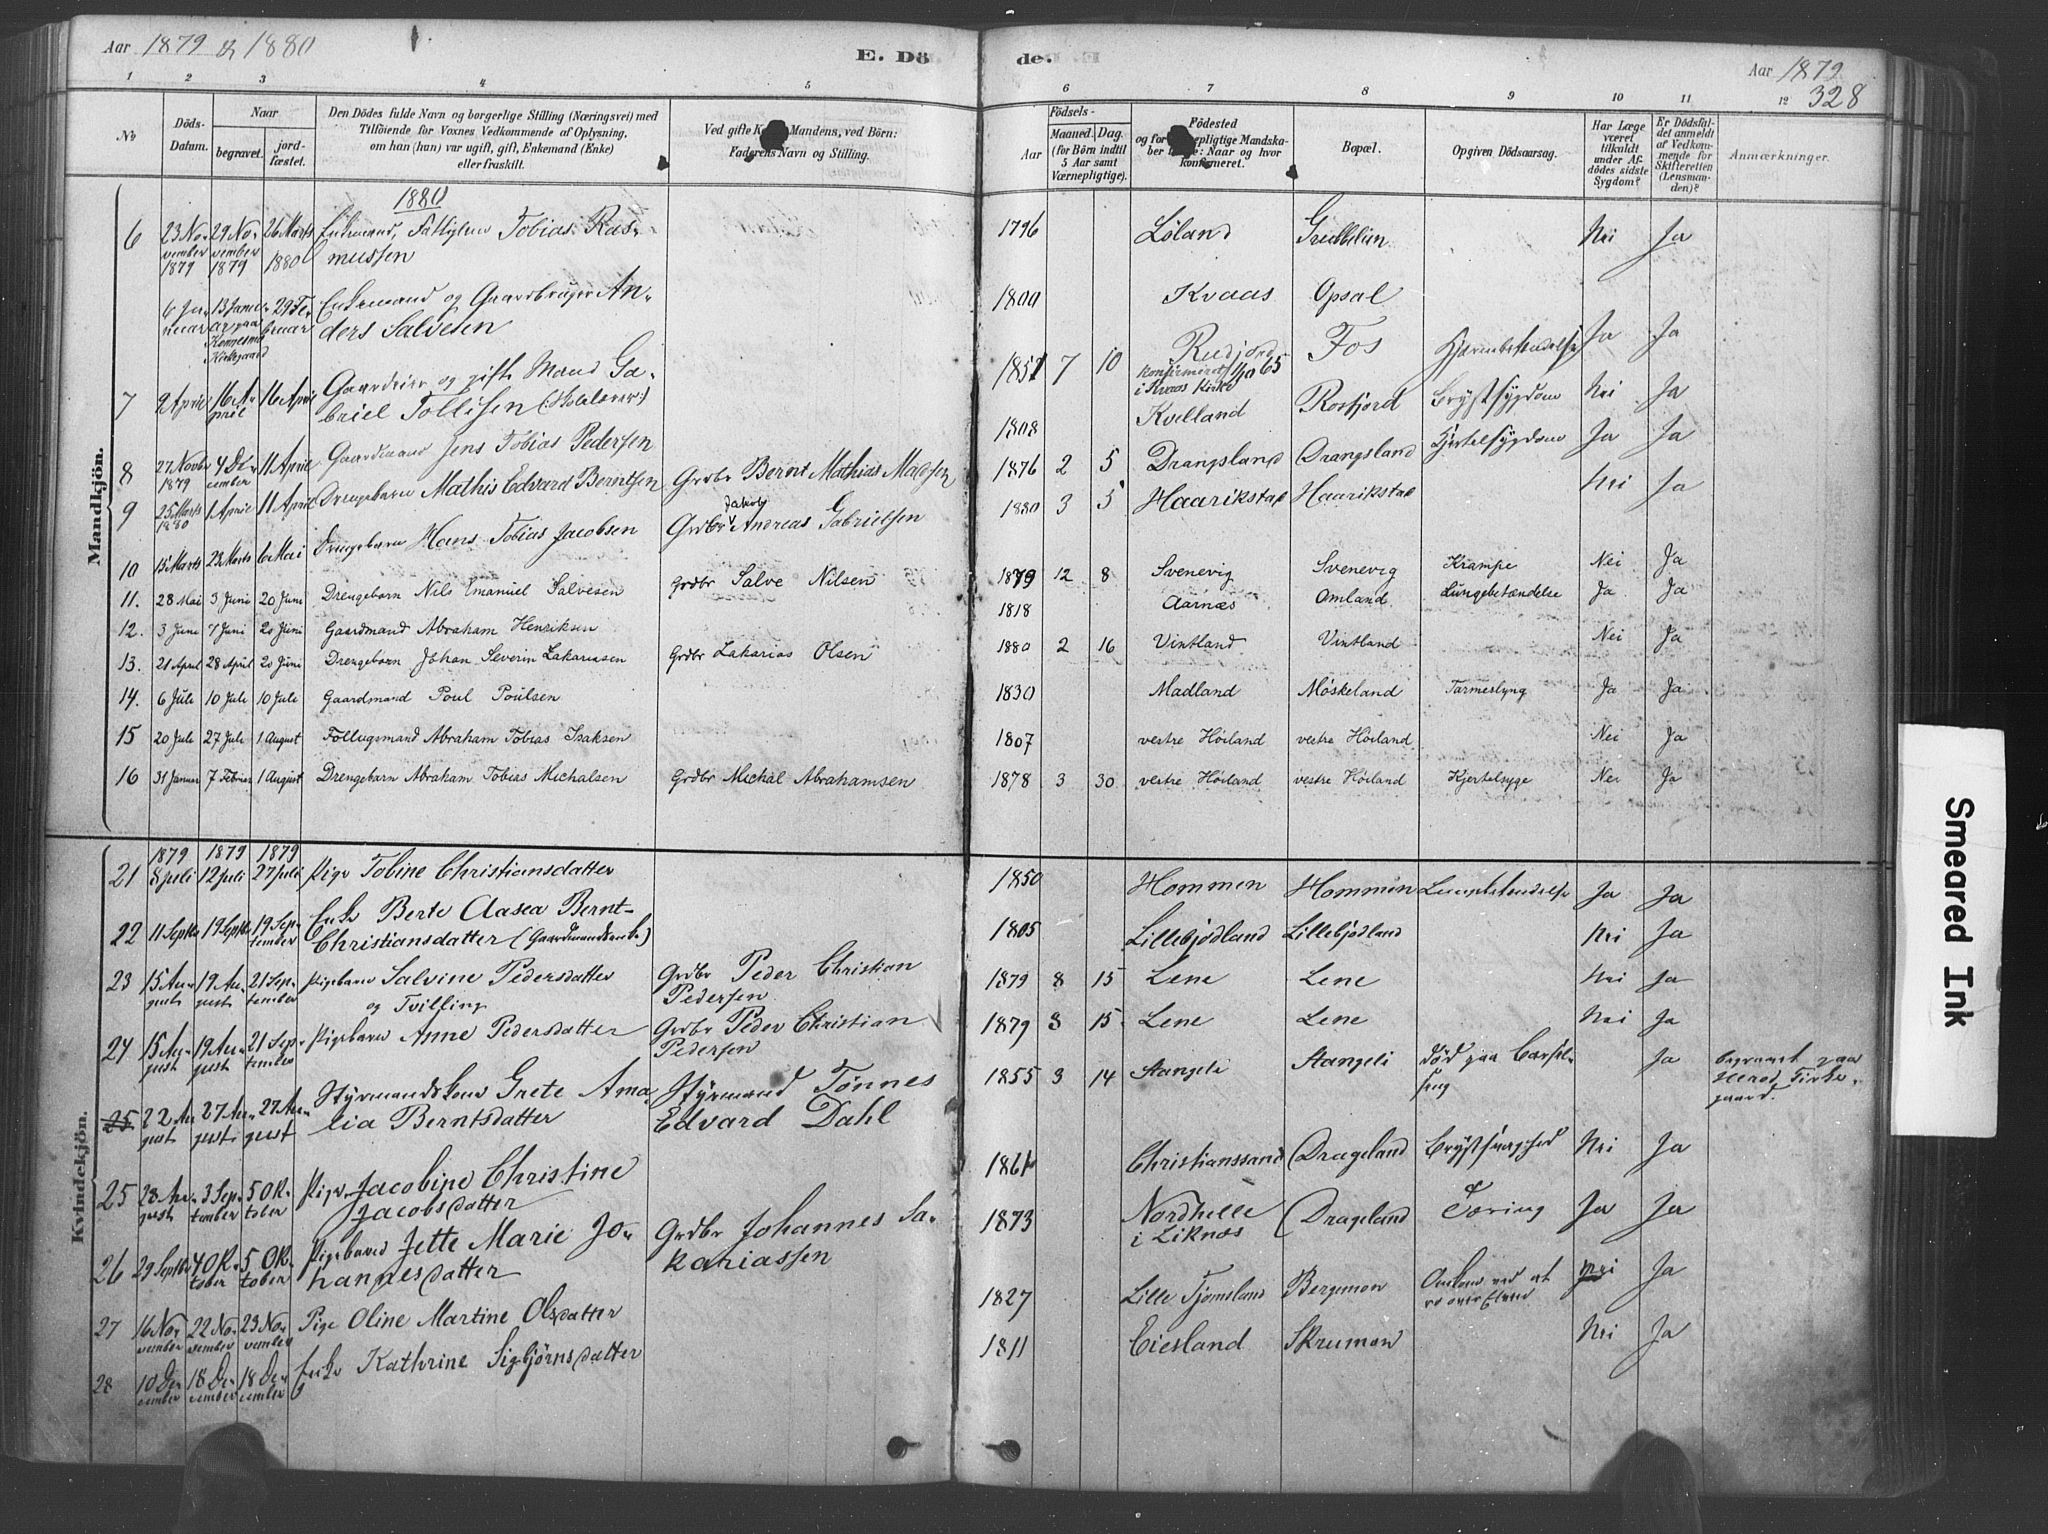 Aar 1879 & 1880
E. Döde.
Aar 1879
328
1 2 3 4 5 6 7 8 9 10 11 12
No
Döds-Datum.
Naar
begravet.
jordfæstet.
Den Dödes fulde Navn og borgerlige Stilling (Næringsvei) med
Tilföiende for Voxnes Vedkommende af Oplysning,
om han (hun) var ugift, gift, Enkemand (Enke)
eller fraskilt.
Ved gifte Mandens, ved Börn:
Faderens Navn og Stilling.
Födsels-
Aar
Maaned. Dag.
(for Börn indtil
5 Aar samt
Værnepligtige).
Födested
og for pligtige Mandska-
ber : Naar og hvor
konfirmeret.
Bopæl.
Opgiven Dödsaarsag.
Har Læge
været
tilkaldt
under Af-
dödes sidste
Sygdom?
Er Dödsfal-
det anmeldt
af Vedkom-
mende for
Skifteretten
(Lensman-
den)?
Anmærkninger.
Mandkjön.
1880
6 23 November 1879 29 November 1879 26 Marts 1880 Enkemand, Fattiglem Tobias Rasmussen 1796 Løland Nei Ja
6 Januar 13 Januar paa Kirkegaard 29 Februar Enkemand og Gaardbruger Anders Salvesen 1800 Kvaas Opsal Ja Ja
7 9 April 16 April 16 April Gaardeier og gift Mand Gabriel Tollisen (: Skolelærer :) 1851 7 10 Rudjord konfirmeret 1/10 65 i Kvaas Kirke Fos
8 27 Novbr 1879 4 December 11 April Gaardmand Jens Tobias Pedersen 1808 Kvelland Rosfjord Brystsygdom Nei Ja
9 25 Marts 1880 1 April 11 April Drengebarn Mathis Edvard Berntsen Grdbr Bernt Mathias Madsen 1876 2 5 Drangsland Drangsland Kjertelsygdom Ja Ja
10 15 Marts 23 Marts 6 Mai Drengebarn Hans Tobias Jacobsen Grdbr Jakob Andreas Gabrielsen 1880 3 5 Haarikstad Haarikstad Nei Ja
11. 28 Mai 3 Juni 20 Juni Drengebarn Nils Emanuel Salvesen Grdbr Salve Nilsen 1879 12 8 Svenevig Svenevig Krampe Nei Ja
12. 3 June 7 Juni 20 Juni Gaardmand Abraham Henriksen 1818 Aarnæs Omland Lungebetændelse Ja Ja
13. 21 April 28 April 20 Juni Drengebarn Johan Severin Zakariasen Grdbr Zakarias Olsen 1880 2 16 Vintland Vintland Nei Ja
14. 6 Juli 10 Juli 10 Juli Gaardmand Poul Poulsen 1830 Madland Möskeland Tarmeslyng Ja Ja
15 20 Juli 27 Juli 1 August Follugsmand Abraham Tobias Isaksen 1807 vestre Höiland vestre Höiland Nei Ja
16 31 Januar 7 Februar 1 August Drengebarn Abraham Tobias Michalsen Grdbr Michal Abrahamsen 1878 3 30 vestre Höiland vestre Höiland Kjertelsyge Nei Ja
Kvindekjön.
1879 1879 1879
21 8 Juli 12 Juli 27 Juli Pige Tobine Christiansdatter 1850 Hommen Hommen Ja Ja
22 11 Septbr 19 Septbr 19 September Enke Berte Aasea Bernt-
Christiansdatter (Gaardmandsenke) 1805 Lillebjödland Lillebjödland Nei Ja
23 15 August 19 August 21 September Pigebarn Salvine Pedersdatter
og Tvilling Grdbr Peder Christian Pedersen 1879 8 15 Lene Lene Nei Ja
24 15 August 19 August 21 September Pigebarn Anne Pedersdatter Grdbr Peder Christian Pedersen 1879 8 15 Lene Lene Nei Ja
25 22 August 27 August 27 August Styrmandskone Grete Amalia Berntsdatter Styrmand Tønnes Edvard Dahl 1855 3 14 Stangeli Stangeli død paa Barselseng Ja begravet paa Herad Kirkegaard.
25 28 August 3 September 5 Oktober Pige Jacobine Christine Jacobsdatter 1861 Christianssand Drageland Nei Ja
26 29 Septbr 4 Oktober 5 Oktober Pigebarn Jette Marie Johannesdatter Grdbr Johannes Sakariassen 1873 Nordhelle i Liknæs Drageland Tæring Ja Ja
27 16 November 22 November 23 November Pige Oline Martine Olsdatter 1827 Lille Tjomsland Bergemon Omkom ved at ro over Elven Nei Ja
28 10 December 18 December 18 December Enke Kathrine Sigbjörnsdatter 1811 Eiesland Skrumon Nei Ja
Smeared Ink